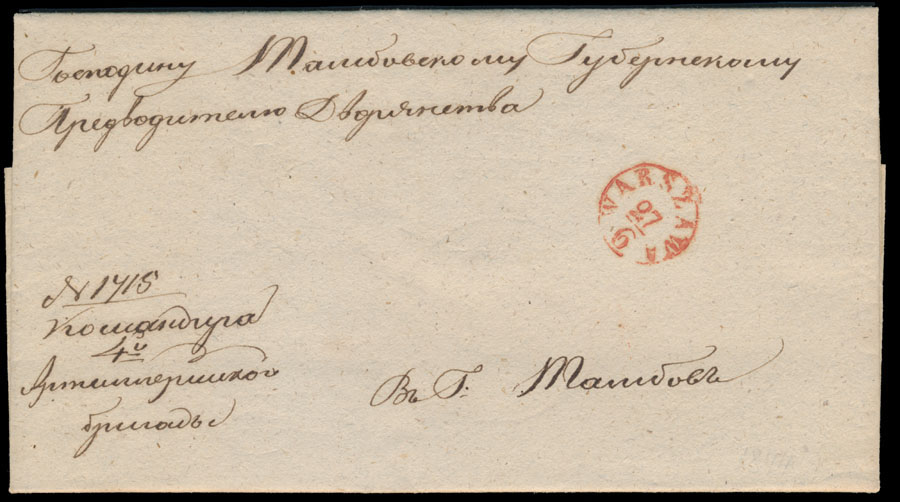 Господину Тамбовскому Губернскому
Предводителю Дворянства
WARSZAWA
N 1715
Командира
4й
Артиллерийской
бригады
Въ Г. Тамбовъ